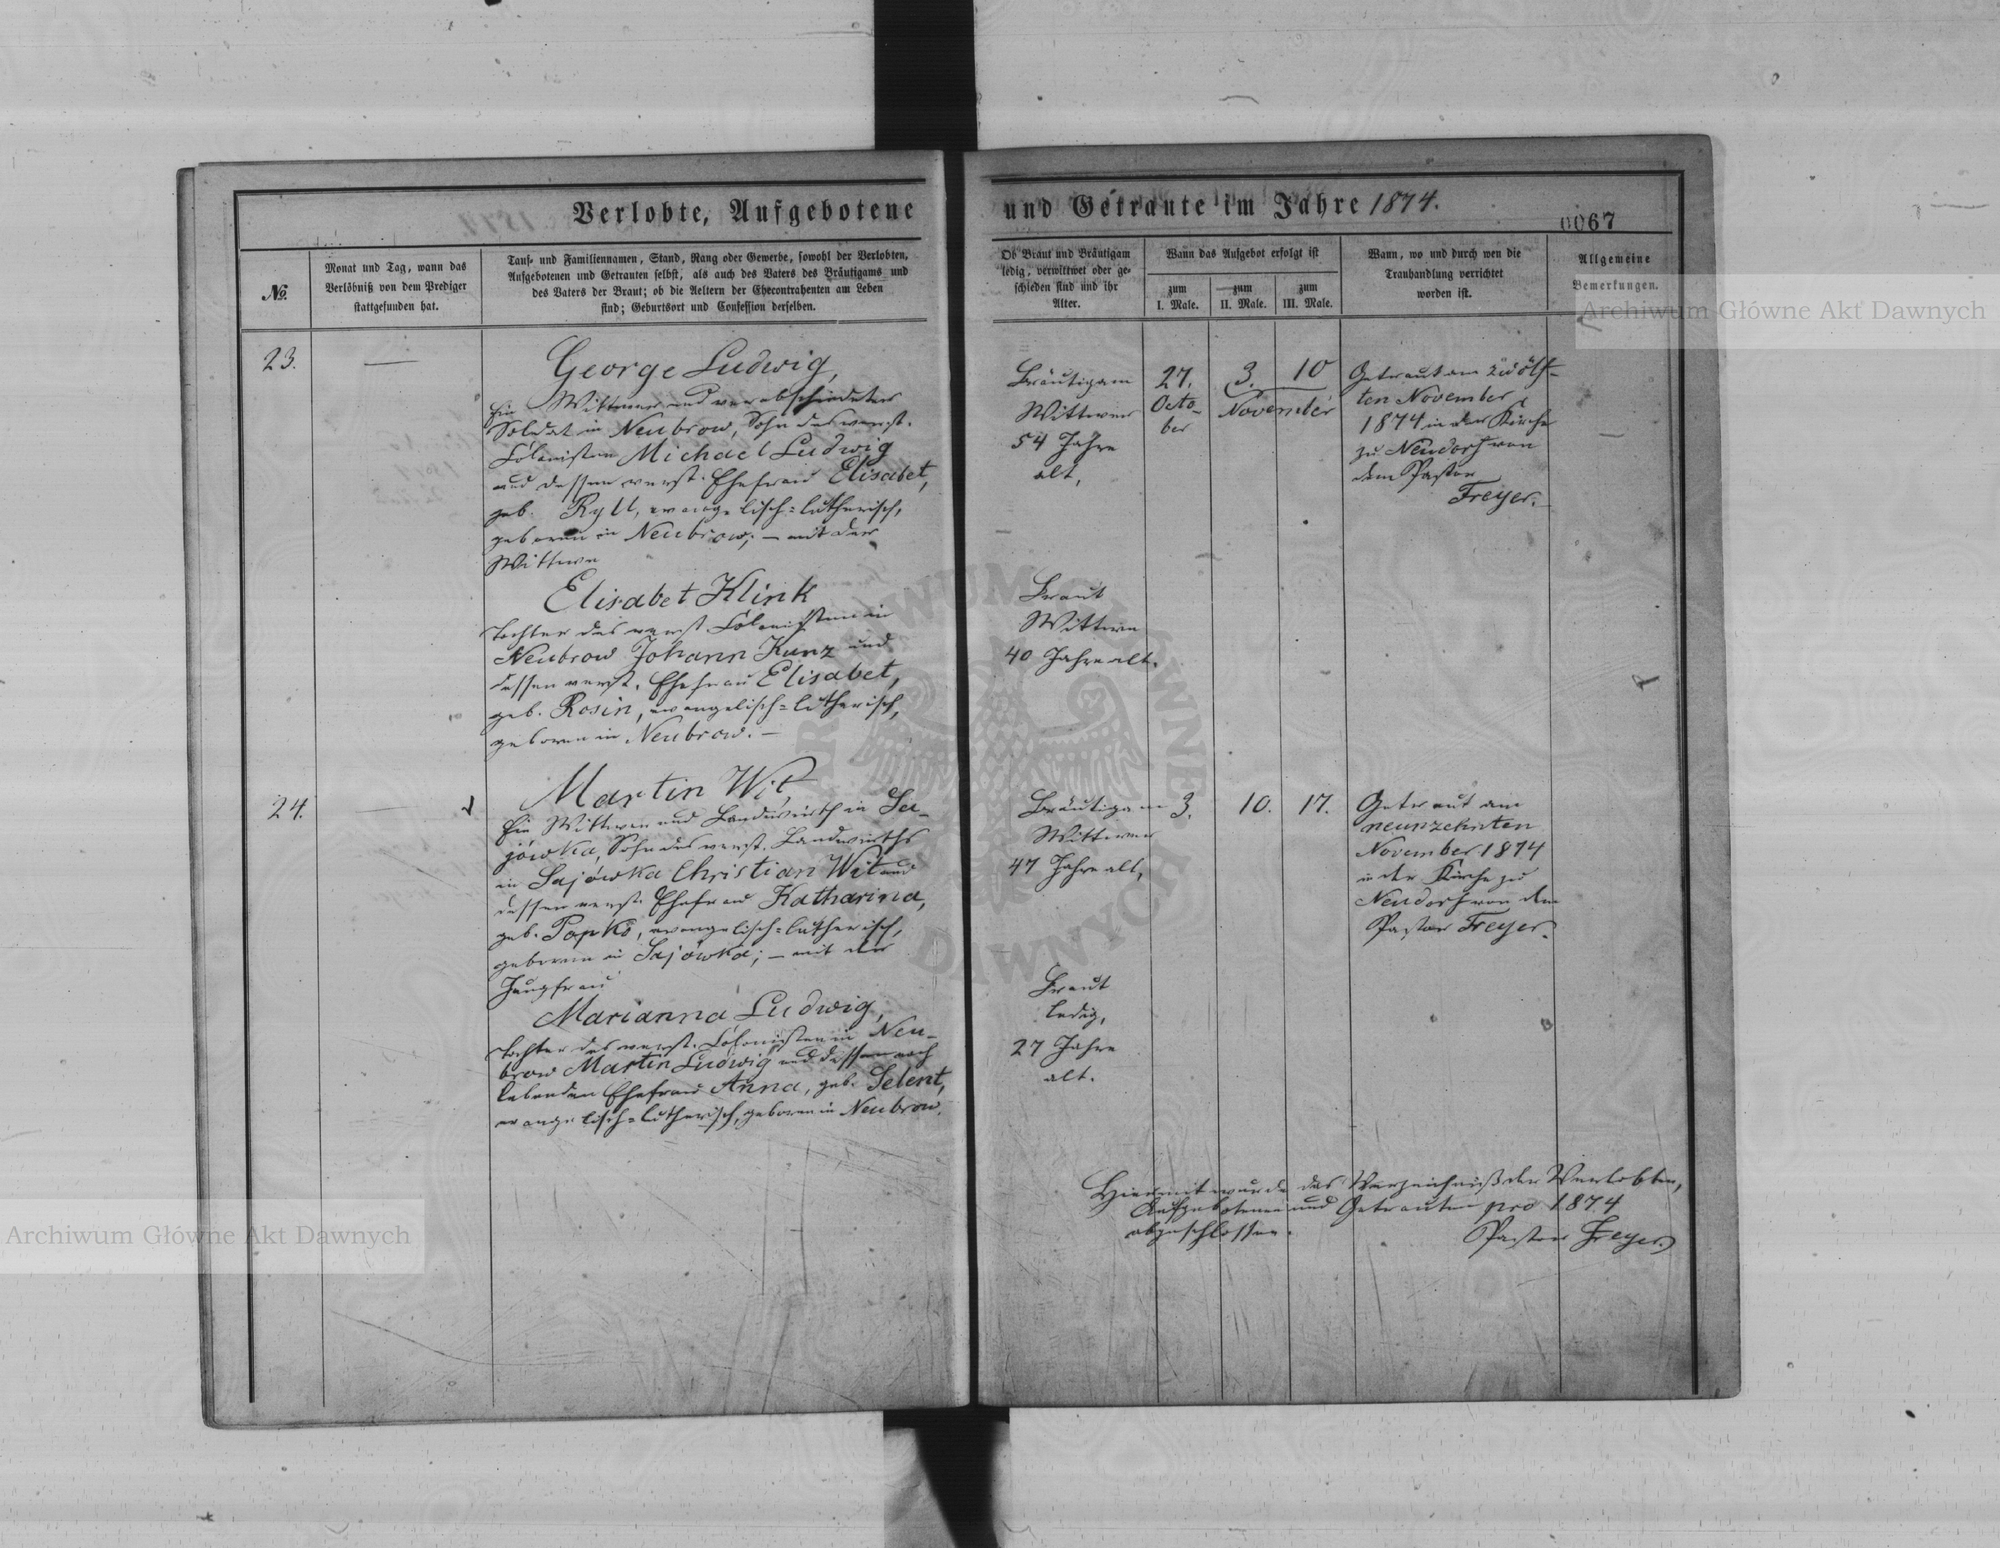 Verlobte, Aufgebotene
und Getraute im Jahre 1874.
0067
No.
Monat und Tag, wann das
Verlöbniß von dem Prediger
stattgefunden hat.
Tauf- und Familiennamen, Stand, Rang oder Gewerbe, sowohl der Verlobten,
Aufgebotenen und Getrauten selbst, als auch des Vaters des Bräutigams und
des Vaters der Braut; ob die Aeltern der Ehecontrahenten am Leben
sind; Geburtsort und Confession derselben.
Ob Braut und Bräutigam
ledig, verwittwet oder ge-
schieden sind und ihr
Alter.
Wann das Aufgebot erfolgt ist
zum
I. Male.
zum
II. Male.
zum
III. Male.
Wann, wo und durch wen die
Trauhandlung verrichtet
worden ist.
Allgemeine
Bemerkungen.
Archiwum Główne Akt Dawnych
23.
George Ludwig,
ein Wittwer und verabschiedeter
Soldat in Neubrow, Sohn des verst.
Colonisten Michael Ludwig
und dessen verst. Ehefrau Elisabet,
geb. Ryll, evangelisch=lutherisch,
geboren in Neubrow; – mit der
Wittwe
Elisabet Klink
Tochter des verst. Colonisten in
Neubrow Johann Kunz und
dessen verst. Ehefrau Elisabet,
geb. Rosin, evangelisch=lutherisch,
geboren in Neubrow. –
Bräutigam
Wittwer
54 Jahre
alt,
27.
Octo-
ber
3. 10
November
Getraut am zwölf-
ten November
1874 in der Kirche
zu Neudorf von
dem Pastor
Freyer.
Braut
Wittwe
40 Jahre alt.
24.
Martin Wit,
ein Wittwer und Landwirth in Sa-
jówka, Sohn des verst. Landwirths
in Sajówka Christian Wit und
dessen verst. Ehefrau Katharina,
geb. Popko, evangelisch=lutherisch,
geboren in Sajówka; – mit der
Jungfrau
Marianna Ludwig,
Tochter des verst. Colonisten in Neu-
brow Martin Ludwig und dessen noch
lebenden Ehefrau Anna, geb. Selent,
evangelisch=lutherisch, geboren in Neubrow.
Bräutigam
Wittwer
47 Jahre alt,
3. 10. 17.
Getraut am
neunzehnten
November 1874
in der Kirche zu
Neudorf von dem
Pastor Freyer.
Braut
ledig,
27 Jahre
alt.
Hiermit wurde das Verzeichniß der Verlobten,
Aufgebotenen und Getrauten pro 1874
abgeschlossen.
Pastor Freyer
Archiwum Główne Akt Dawnych
ARCHIWUM GŁÓWNE AKT DAWNYCH